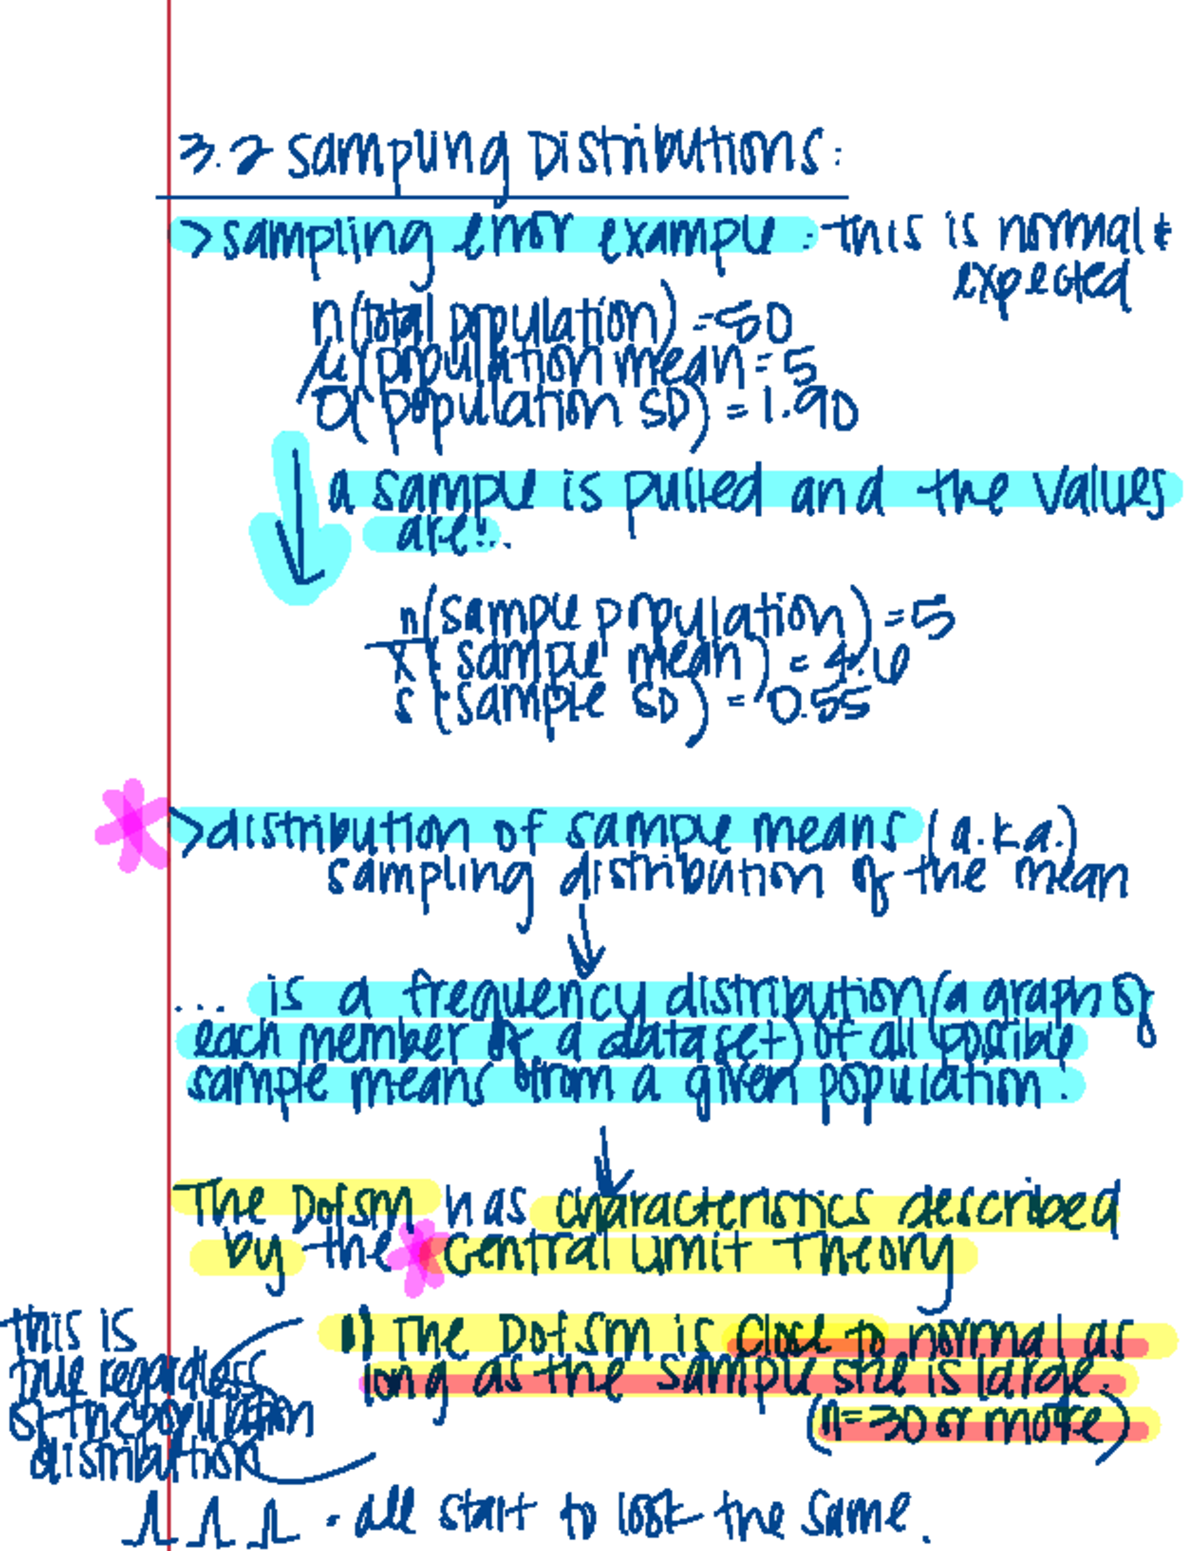 3.2 Sampling Distributions:
>sampling error example: this is normal &
expected
n(total population) = 50
μ(population mean = 5
σ(population SD) = 1.90
a sample is pulled and the values
are:..
n(sample population) = 5
x̄ (sample mean) = 4.6
s (sample SD) = 0.55
>distribution of sample means (a.k.a.)
sampling distribution of the mean
... is a frequency distribution(a graph of
each member of a dataset) of all possible
sample means from a given population.
The Dofsm has characteristics described
by the * Central Limit Theory
1) The Dofsm is close to normal as
long as the sample size is large.
(n=30 or more)
this is
true regardless
of the population
distribution
- all start to look the same.